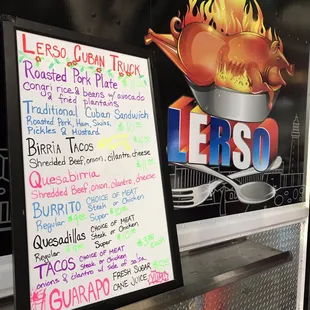 LERSO CUBAN TRUCK
Roasted Pork Plate
congri rice & beans w/ avocado
& fried plantains
Traditional Cuban Sandwich
Roasted Pork, Ham, Swiss,
Pickles & Mustard
BIRRIA TACOS
Shredded Beef, onion, cilantro, cheese
Quesabirria
Shredded Beef, onion, cilantro, cheese
BURRITO CHOICE OF MEAT
Steak or Chicken
Regular Super
Quesadillas CHOICE OF MEAT
Steak or Chicken
Regular Super
TACOS CHOICE OF MEAT
Steak or Chicken
onions & cilantro w/ side of salsa
#1 GUARAPO FRESH SUGAR
CANE JUICE
LERSO
LERSO